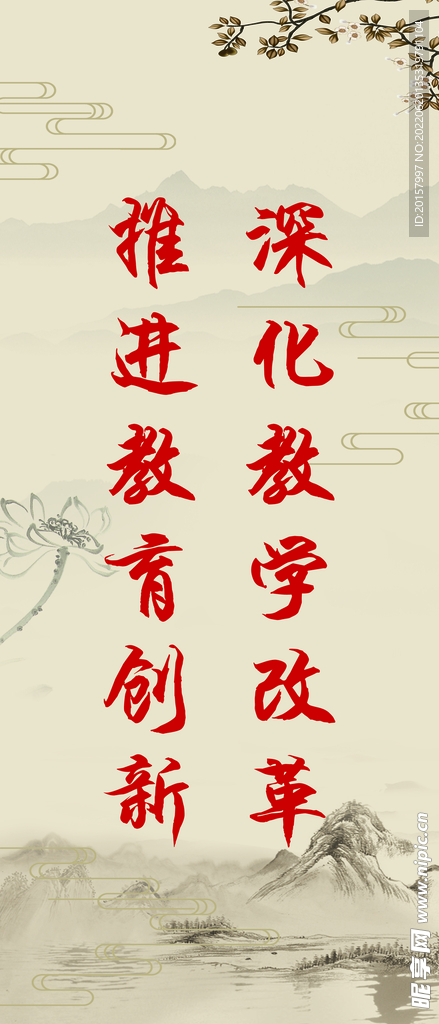 深化教学改革
推进教育创新
ID:20157997 NO:20220620135319781104
昵享网 www.nipic.cn